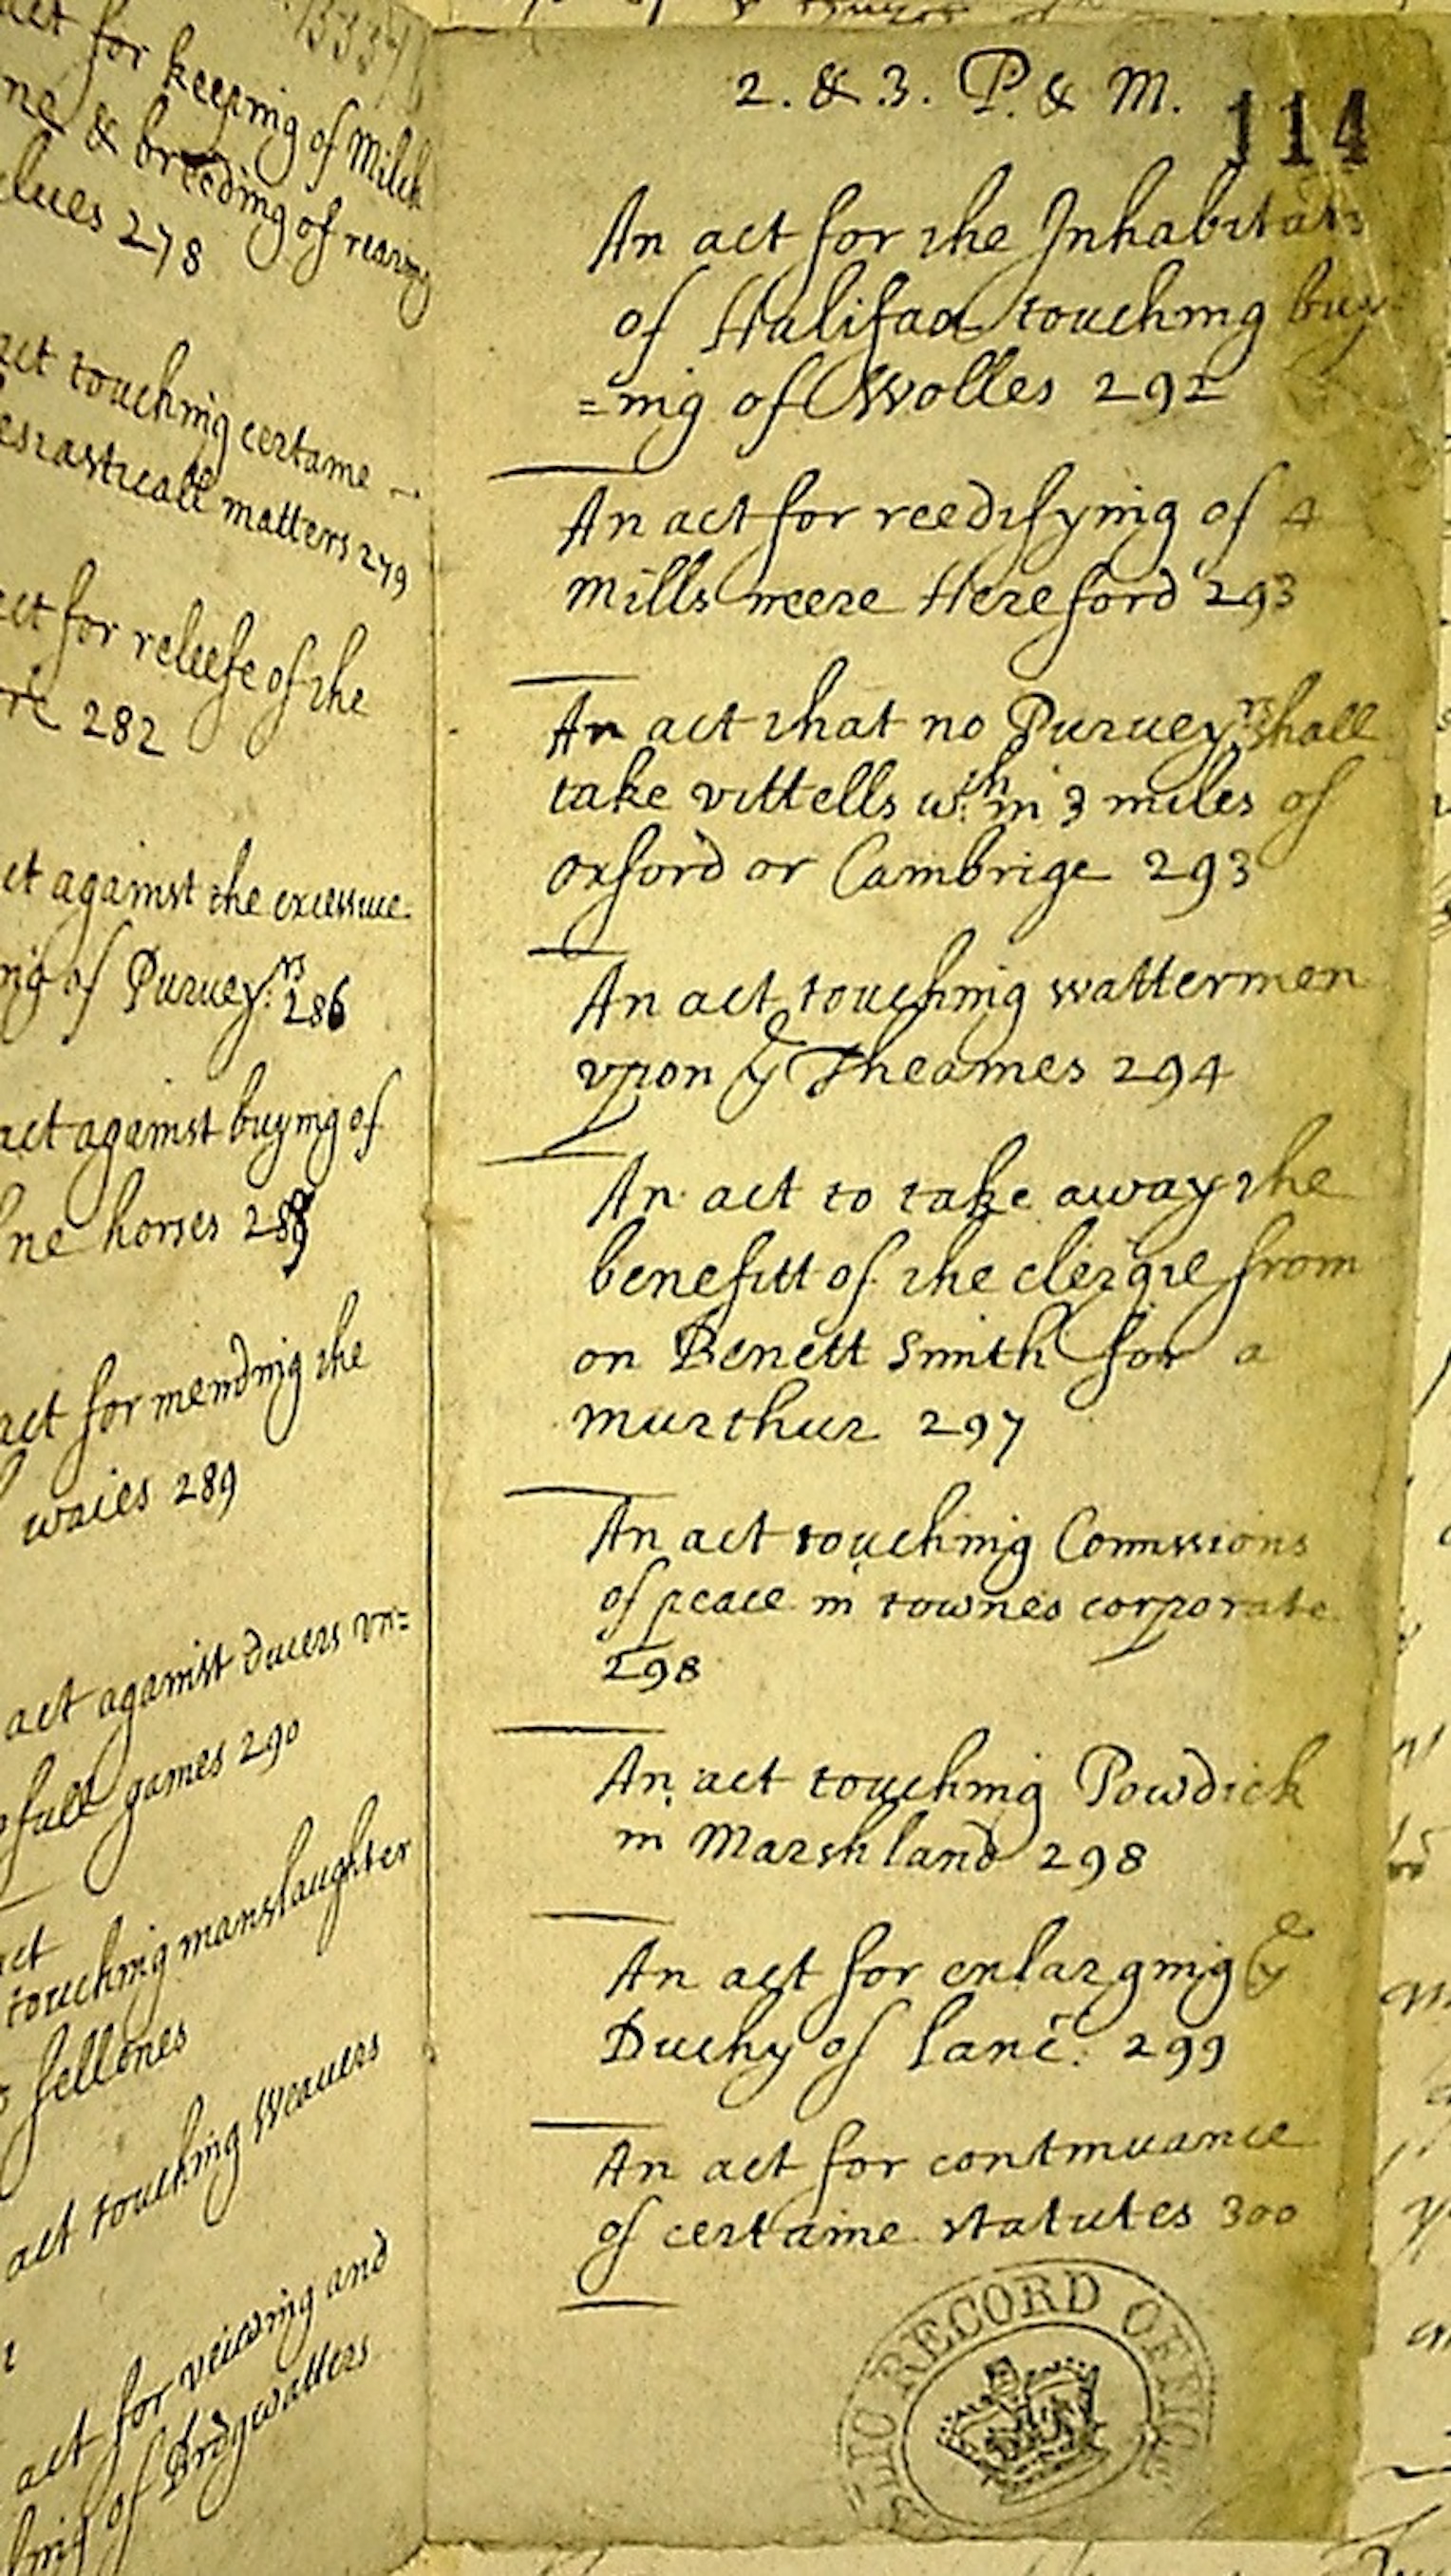 1555
act for keeping of Milch
ne & breeding of rearing
lues 278
act touching certaine
esiasticall matters 279
act for releefe of the
282
act against the excessiue
ng of Puruey:rs 286
act against buying of
ne horses
act for mending the
waies 289
act against dicers vn=
efull games 290
act
touching manslaughter
fellones
act touching Weauers
act for veiwing and
of Brdgwatters
2. & 3. P. & M.
114
An act for the Inhabitats
of Halifax touching buy
=ing of Wolles 292
An act for reedifying of 4
mills neere Hereford 293
An act that no Puruey:rs shall
take vittells w:thin 3 miles of
Oxford or Cambrige 293
An act touching wattermen
vpon ye Theames 294
An act to take away the
benefitt of the clergie from
on Benett Smith for a
murthur 297
An act touching Comissions
of peace in townes corporate
298
An act touching Powdick
in Marshland 298
An act for enlarging ye
Duchy of Lanc: 299
An act for continuance
of certaine statutes 300
PUBLIC RECORD OFFICE